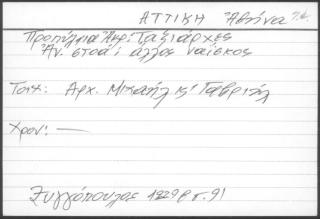 ΑΤΤΙΚΗ Ἀθήνα
Προπύλαια Ἀκρ: Ταξιάρχες
Ἀν. στοά; ἄλλος ναΐσκος
Τοιχ: Ἀρχ. Μιχαήλ κ' Γαβριήλ
Χρον: —
Ξυγγόπουλος 1929β σ. 91